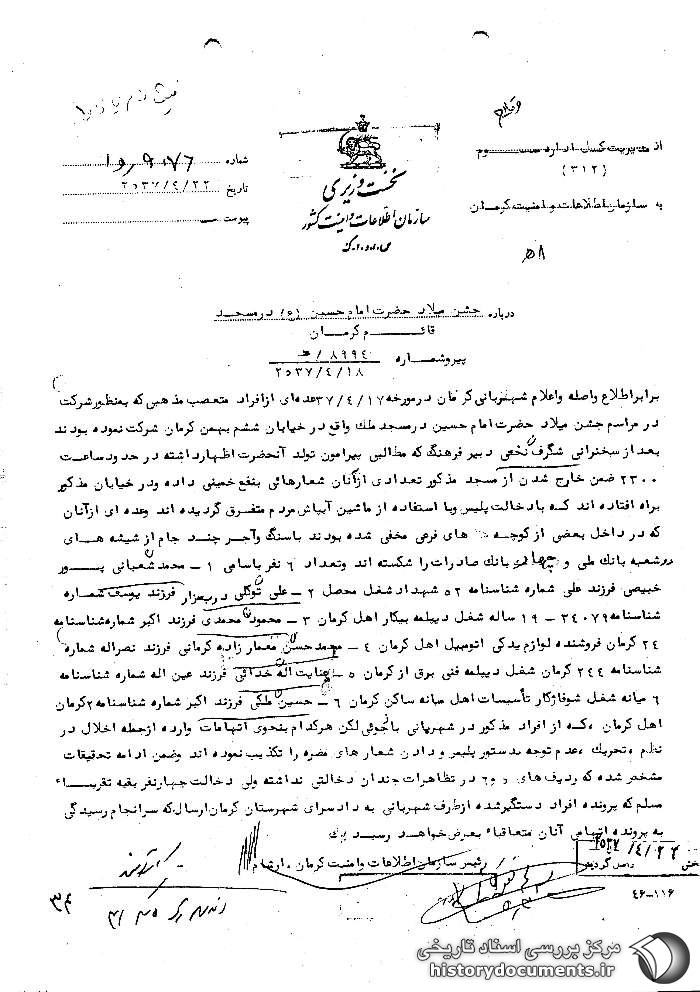 از مدیریت کل اداره سوم
(۳۱۲)
به سازمان اطلاعات و امنیت کرمان
نخست وزیری
سازمان اطلاعات و امنیت کشور
شماره
تاریخ ۲۵۳۷/۴/۲۲
پیوست
درباره جشن میلاد حضرت امام حسین (ع) در مسجد
قائم کرمان
پیرو شماره ۸۹۹۴/ﻫ
۲۵۳۷/۴/۱۸
برابر اطلاع واصله و اعلام شهربانی کرمان در مورخه ۳۷/۴/۱۷ عده‌ای از افراد متعصب مذهبی که به‌منظور شرکت
در مراسم جشن میلاد حضرت امام حسین در مسجد ملک واقع در خیابان ششم بهمن کرمان شرکت نموده بودند
بعد از سخنرانی شگرف نخعی دبیر فرهنگ که مطالبی پیرامون تولد آنحضرت اظهار داشته در حدود ساعت
۲۳۰۰ ضمن خارج شدن از مسجد مذکور تعدادی از آنان شعارهائی بنفع خمینی داده و در خیابان مذکور
براه افتاده اند که با دخالت پلیس و با استفاده از ماشین آبپاش مردم متفرق گردیده اند و عده ای از آنان
که در داخل بعضی از کوچه های فرعی مخفی شده بودند با سنگ و آجر چند جام از شیشه های
دو شعبه بانک ملی و چهار بانک صادرات را شکسته اند و تعداد ۶ نفر باسامی ۱ـ محمد شعبانی پور
خبیصی فرزند علی شماره شناسنامه ۵۲ شهداد شغل محصل ۲ـ علی توکلی درب مزار فرزند یوسف شماره
شناسنامه ۳۴۰۷۹ ـ ۱۹ ساله شغل دیپلمه بیکار اهل کرمان ۳ـ محمود محمدی فرزند اکبر شماره شناسنامه
۲۴ کرمان فروشنده لوازم یدکی اتومبیل اهل کرمان ۴ـ محمد حسن معمار زاده کرمانی فرزند نصراله شماره
شناسنامه ۲۴۴ کرمان شغل دیپلمه فنی برق از کرمان ۵ـ عنایت اله خدائی فرزند عین اله شماره شناسنامه
۶ میانه شغل شوفاژکار تأسیسات اهل میانه ساکن کرمان ۶ـ حسین ملکی فرزند اکبر شماره شناسنامه ۲ کرمان
اهل کرمان ، که از افراد مذکور در شهربانی بازجوئی لکن هرکدام بنحوی اتهامات وارده از جمله اخلال در
نظم و تحریک ، عدم توجه بدستور پلیس و دادن شعار های مضره را تکذیب نموده اند و ضمن ادامه تحقیقات
مشخص شده که ردیف های ۵ و ۶ در تظاهرات چندان دخالتی نداشته ولی دخالت چهار نفر بقیه تقریباً
مسلم که پرونده افراد دستگیر شده از طرف شهربانی به دادسرای شهرستان کرمان ارسال که سرانجام رسیدگی
به پرونده اتهامی آنان متعاقباً بعرض خواهد رسید
رئیس سازمان اطلاعات و امنیت کرمان ـ
۴۶-۱۱۶
مرکز بررسی اسناد تاریخی
historydocuments.ir